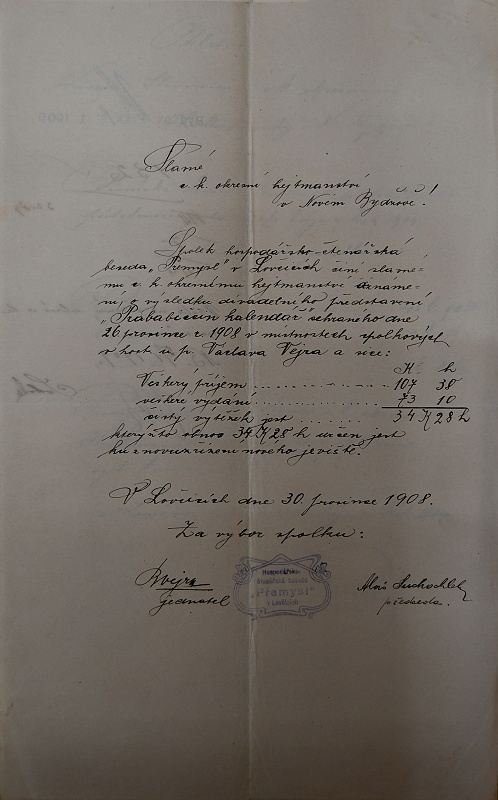 Slavné
c. k. okresní hejtmanství
v Novém Bydžově!
Spolek hospodářsko-čtenářská
beseda „Přemysl" v Lovčicích činí slavné-
mu c. k. okresnímu hejtmanství oznáme-
ní, o výsledku divadelního představení
„Prababiččin kalendář" sehraného dne
26. prosince r. 1908 v místnostech spolkových
v host. u p. Václava Vejra a sice:
K h
Veškerý příjem 107 38
veškeré vydání 73 10
čistý výtěžek jest 34 K 28 h
kterýžto obnos 34 K 28 h určen jest
ku znovuzřízení nového jeviště.
V Lovčicích dne 30. prosince 1908.
Za výbor spolku:
Hospodářsko-
čtenářská beseda
„Přemysl"
v Lovčicích
RVejra
jednatel
Alois
předseda.